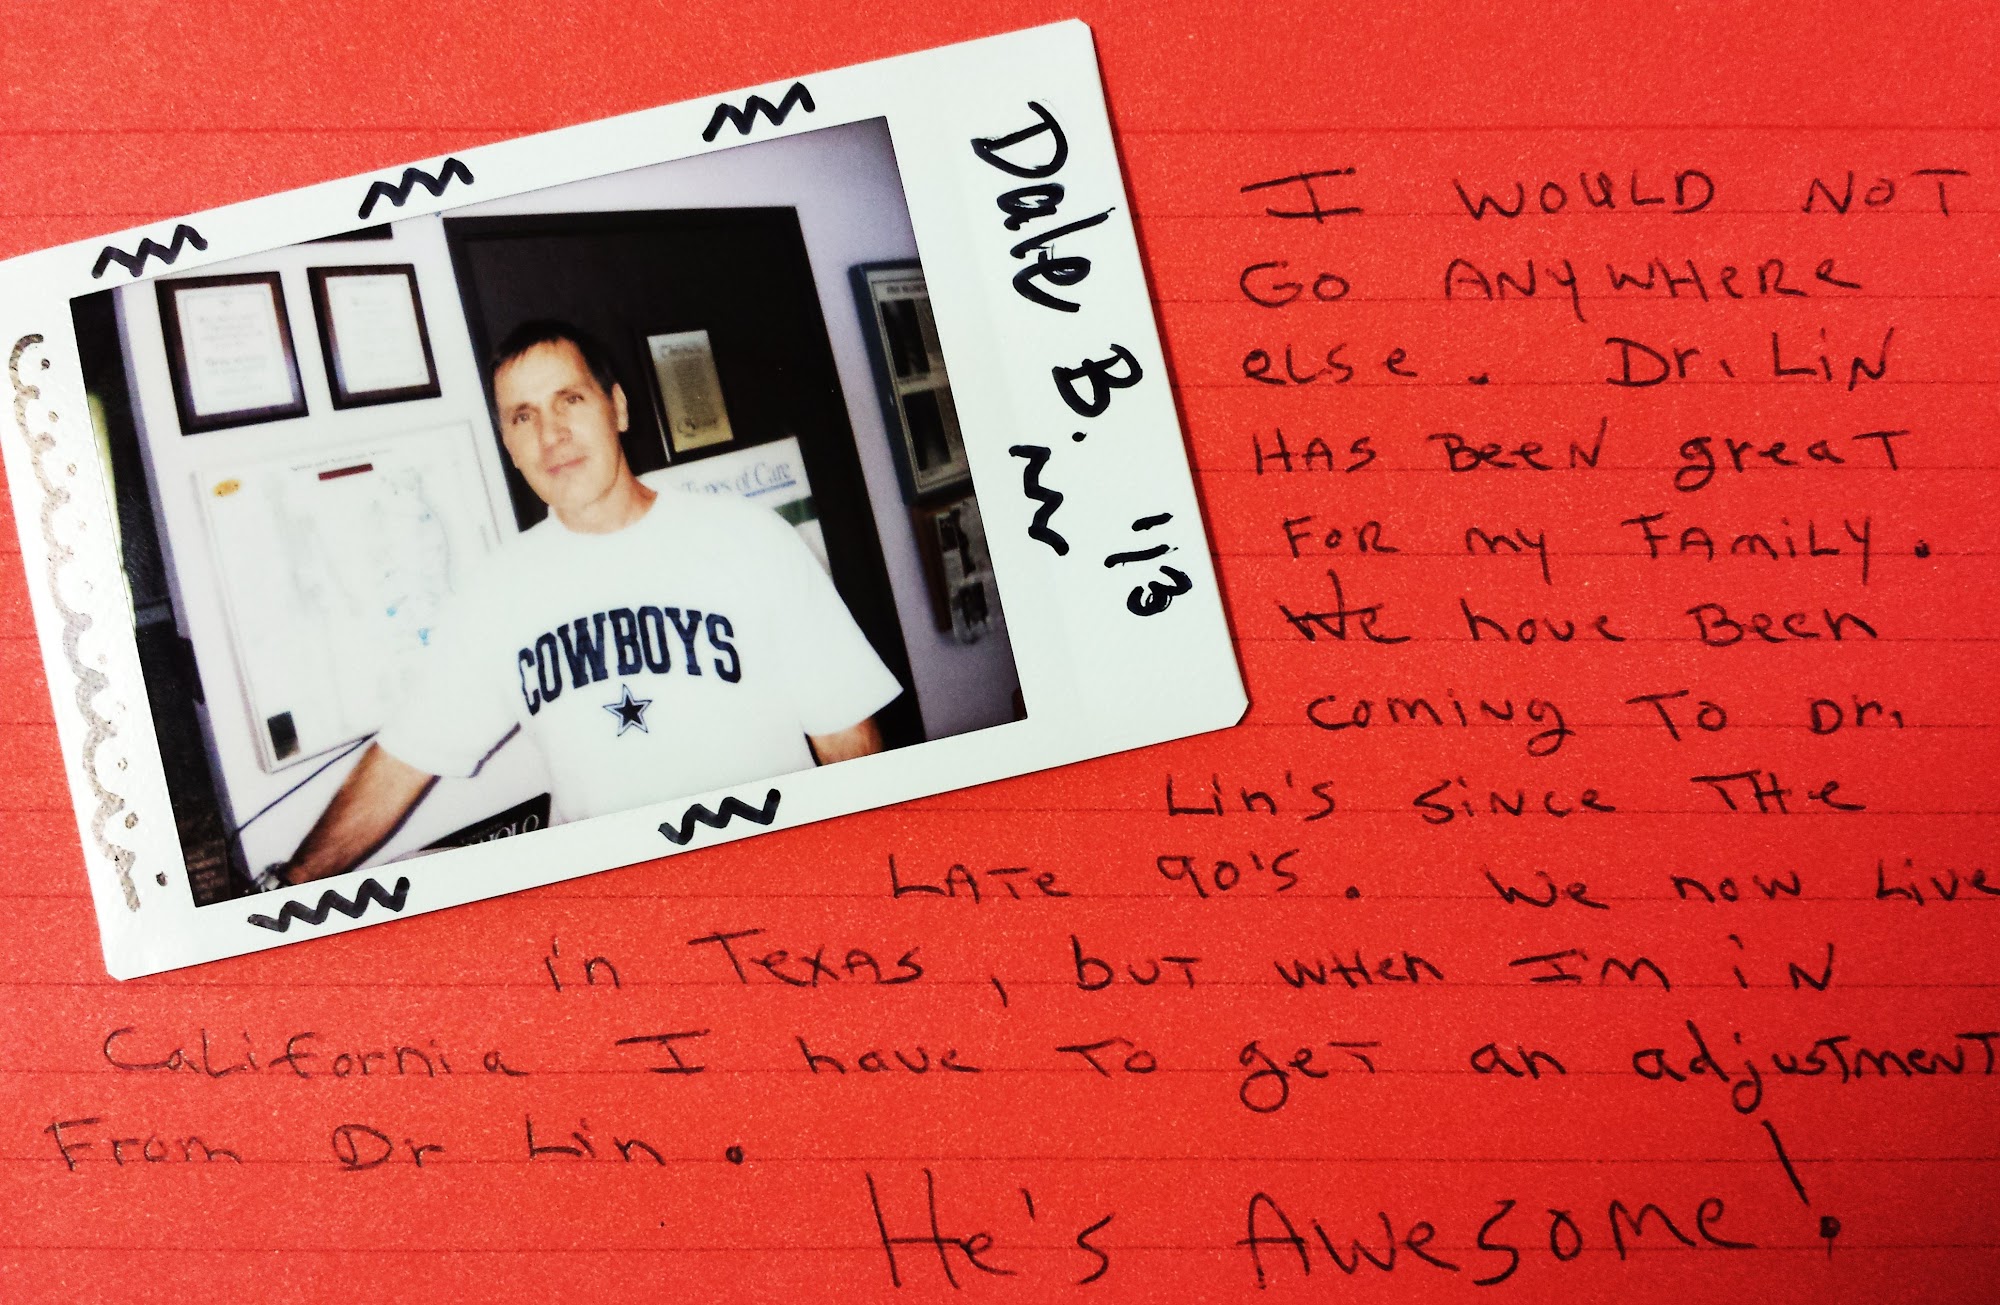 Dale B.
1/13
Types of Care
COWBOYS
I WOULD NOT
GO ANYWHERE
ELSE. Dr. Lin
HAS BEEN great
FOR my FAMILY.
We have Been
coming TO Dr.
Lin's SINCE THE
LATE 90'S. We now Live
in Texas, but when I'm in
California I have TO get an adjustment
From Dr Lin.
He's Awesome!